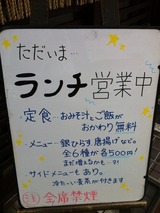 ただいま…
ランチ営業中
定食 … おみそ汁とご飯が
おかわり無料
メニュー … 銀ひらす、唐揚げなど。
全6種が各500円!
まだ増えるかも…
サイドメニューもあり。
冷たい麦茶が付きます
注 全席禁煙